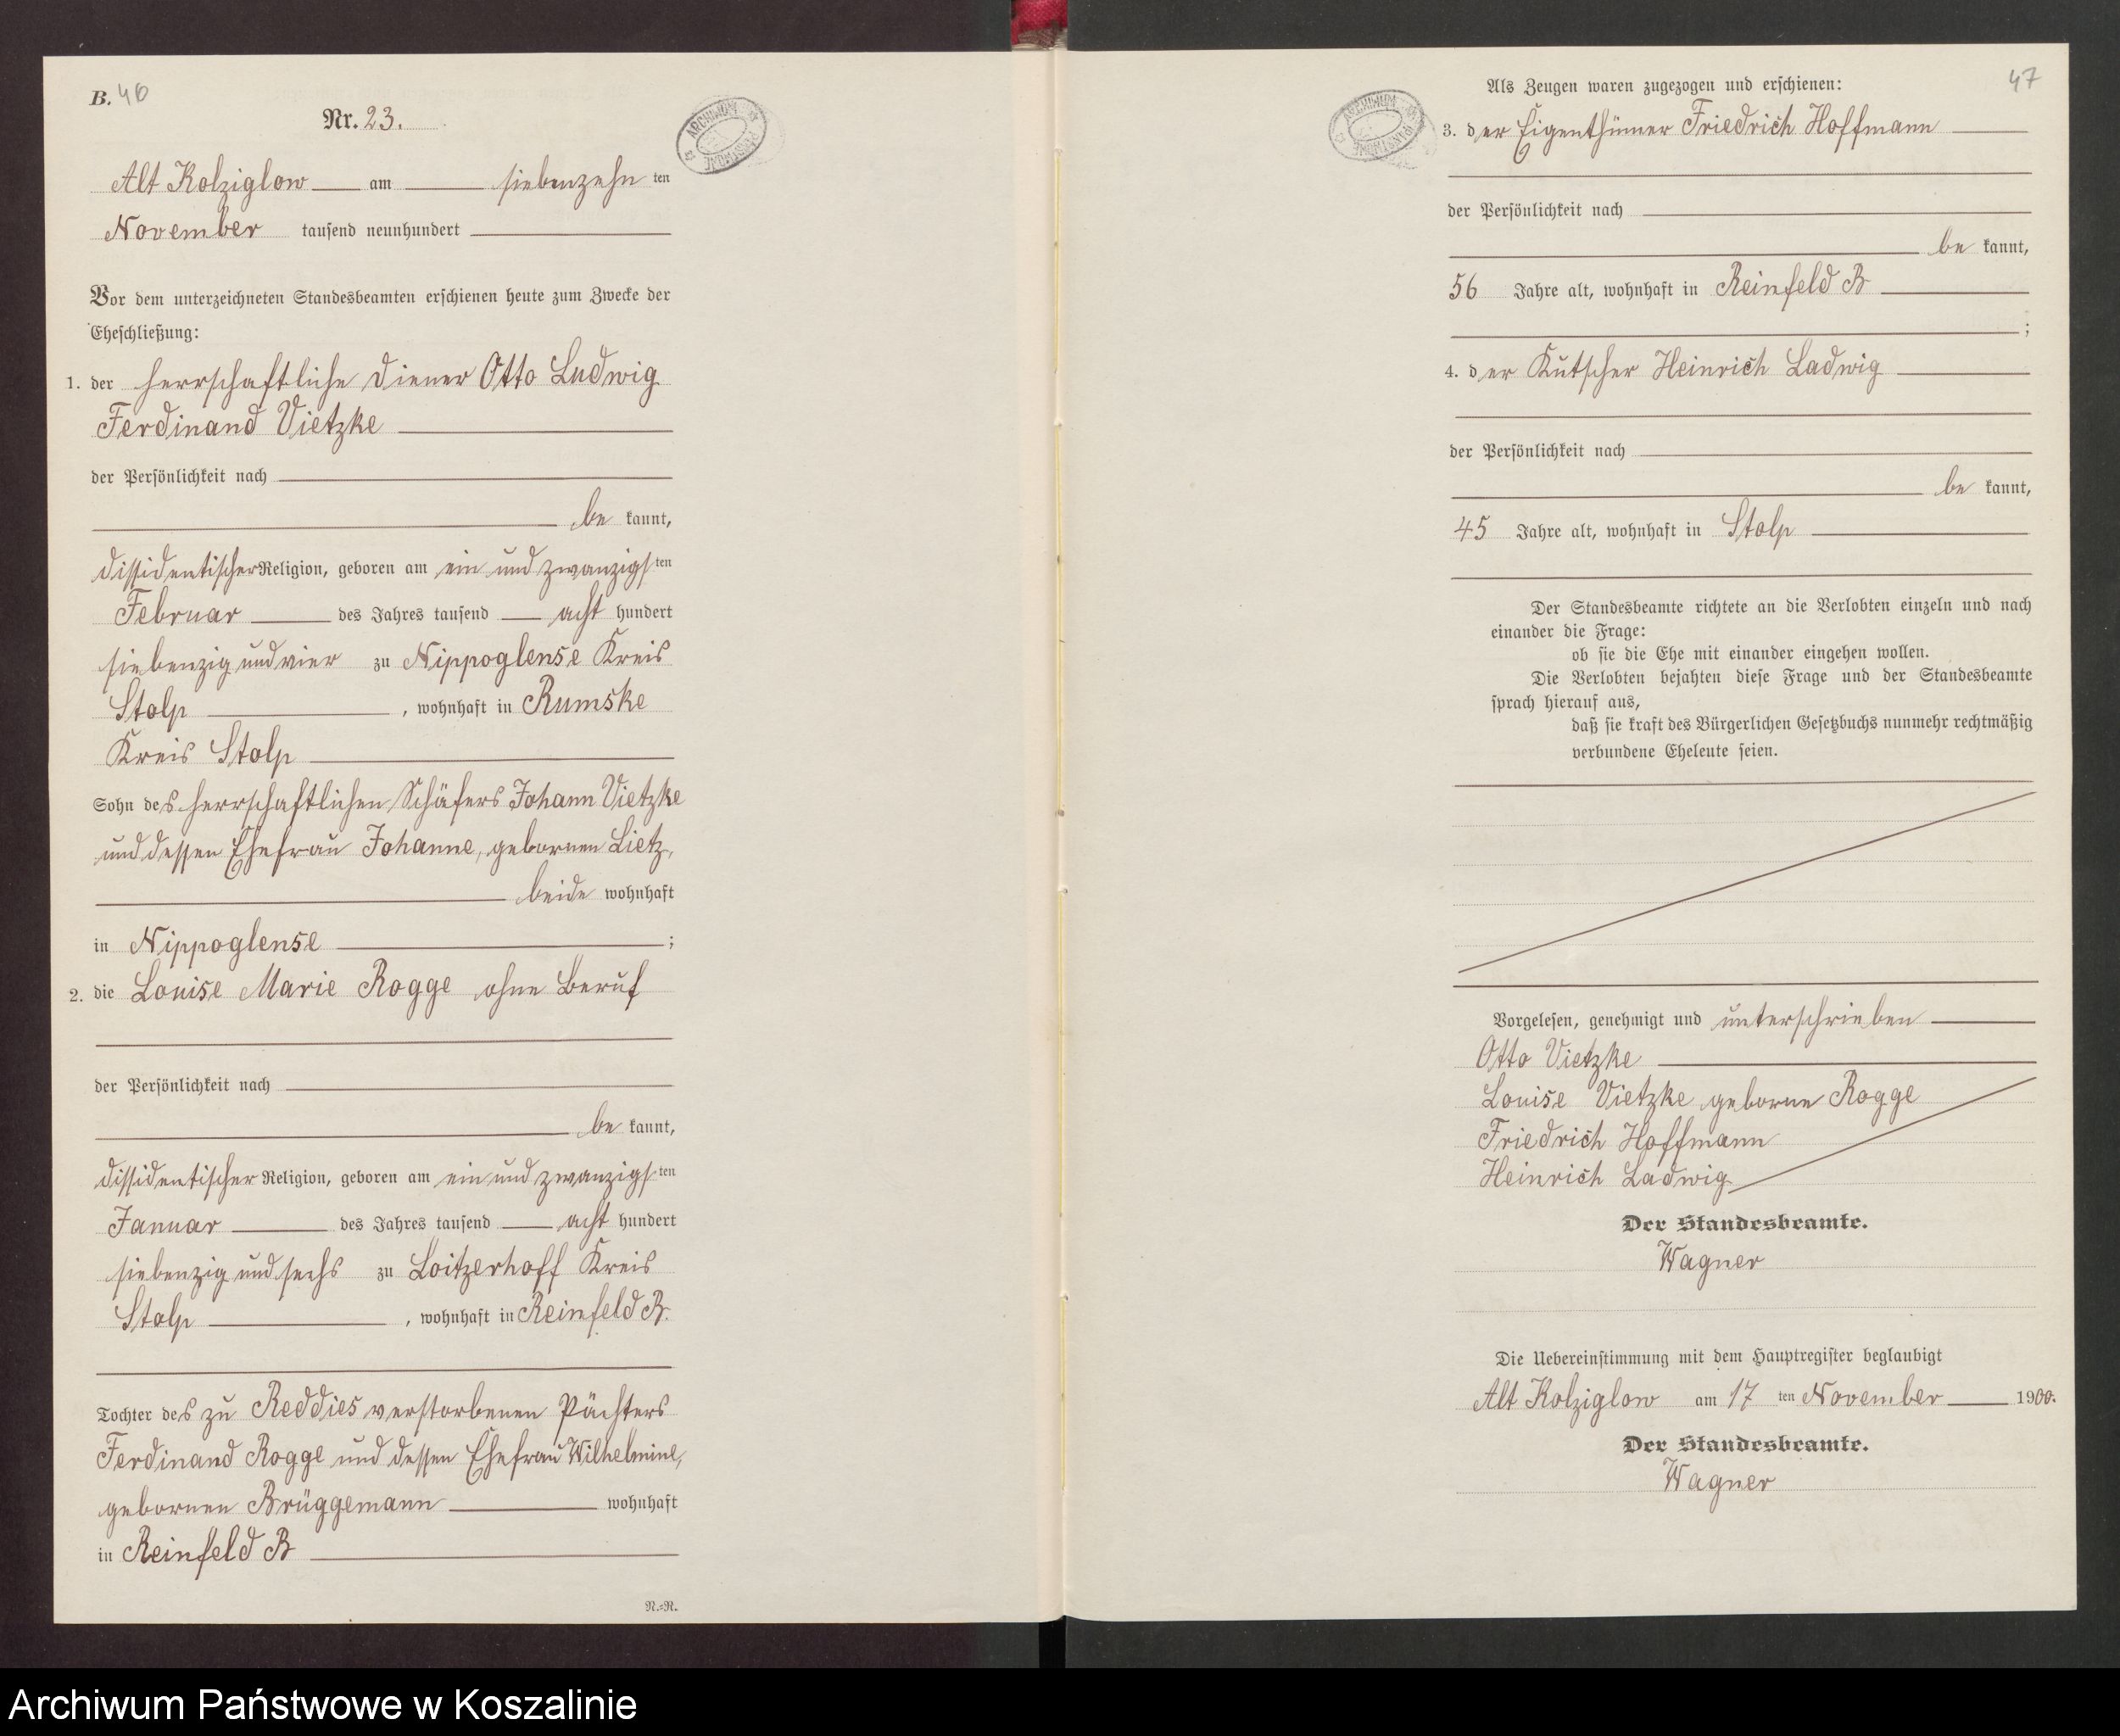 B. 46
Nr. 23.
Alt Kolziglow am siebenzehn ten
November tausend neunhundert
Vor dem unterzeichneten Standesbeamten erschienen heute zum Zwecke der
Eheschließung:
1. der herrschaftliche Diener Otto Ludwig
Ferdinand Vietzke
der Persönlichkeit nach
be kannt,
dissidentischer Religion, geboren am ein und zwanzigsten
Februar des Jahres tausend acht hundert
siebenzig und vier zu Nippoglense Kreis
Stolp, wohnhaft in Rumske
Kreis Stolp
Sohn des herrschaftlichen Schäfers Johann Vietzke
und dessen Ehefrau Johanne, gebornen Lietz,
beide wohnhaft
in Nippoglense ;
2. die Louise Marie Rogge ohne Beruf
der Persönlichkeit nach
be kannt,
dissidentischer Religion, geboren am ein und zwanzigsten
Januar des Jahres tausend acht hundert
siebenzig und sechs zu Loitzerhoff Kreis
Stolp, wohnhaft in Reinfeld B.
Tochter des zu Reddies verstorbenen Pächters
Ferdinand Rogge und dessen Ehefrau Wilhelmine,
gebornen Brüggemann wohnhaft
in Reinfeld B
N.=R.
47
Als Zeugen waren zugezogen und erschienen:
3. der Eigenthümer Friedrich Hoffmann
der Persönlichkeit nach
be kannt,
56 Jahre alt, wohnhaft in Reinfeld B
;
4. der Kutscher Heinrich Ladwig
der Persönlichkeit nach
be kannt,
45 Jahre alt, wohnhaft in Stolp
Der Standesbeamte richtete an die Verlobten einzeln und nach
einander die Frage:
ob sie die Ehe mit einander eingehen wollen.
Die Verlobten bejahten diese Frage und der Standesbeamte
sprach hierauf aus,
daß sie kraft des Bürgerlichen Gesetzbuchs nunmehr rechtmäßig
verbundene Eheleute seien.
Vorgelesen, genehmigt und unterschrieben
Otto Vietzke
Louise Vietzke geborne Rogge
Friedrich Hoffmann
Heinrich Ladwig
Der Standesbeamte.
Wagner
Die Uebereinstimmung mit dem Hauptregister beglaubigt
Alt Kolziglow am 17 ten November 1900.
Der Standesbeamte.
Wagner
Archiwum Państwowe w Koszalinie